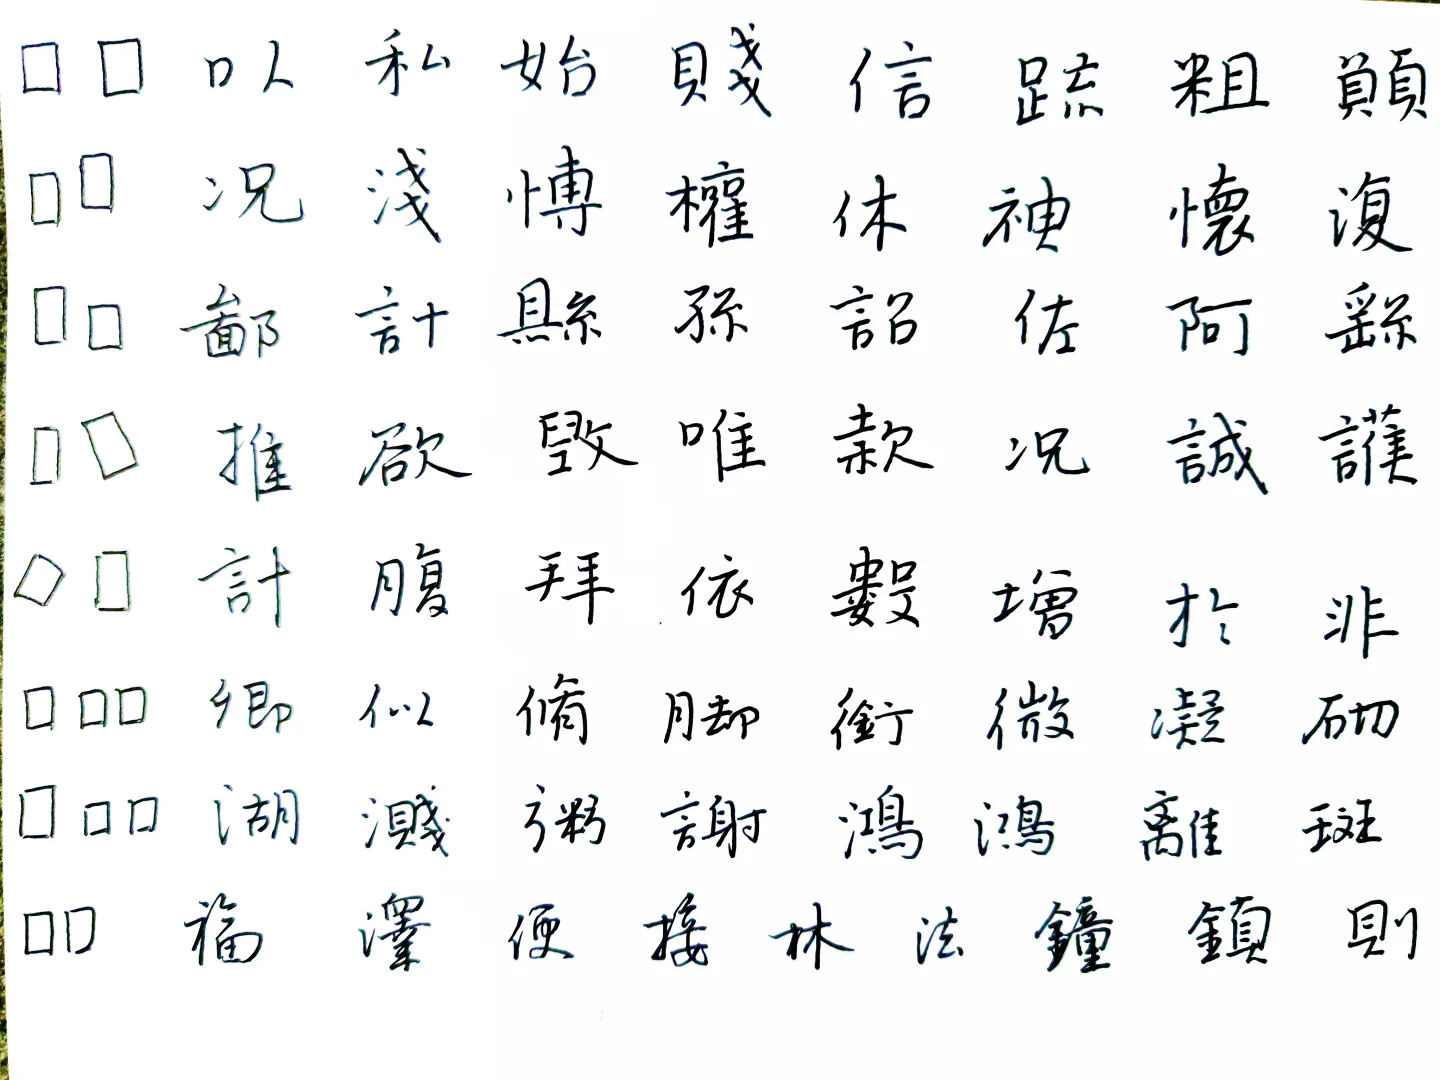 以 私 始 賤 信 疏 粗 顛
况 淺 博 權 休 神 懷 復
鄙 計 縣 孫 詔 佐 阿 繇
推 欲 毀 唯 款 况 誠 謹
計 腹 拜 依 數 增 於 非
鄉 似 脩 脚 銜 微 凝 砌
湖 濺 粥 謝 鴻 鴻 離 斑
福 澤 便 接 林 法 鐘 鎮 則